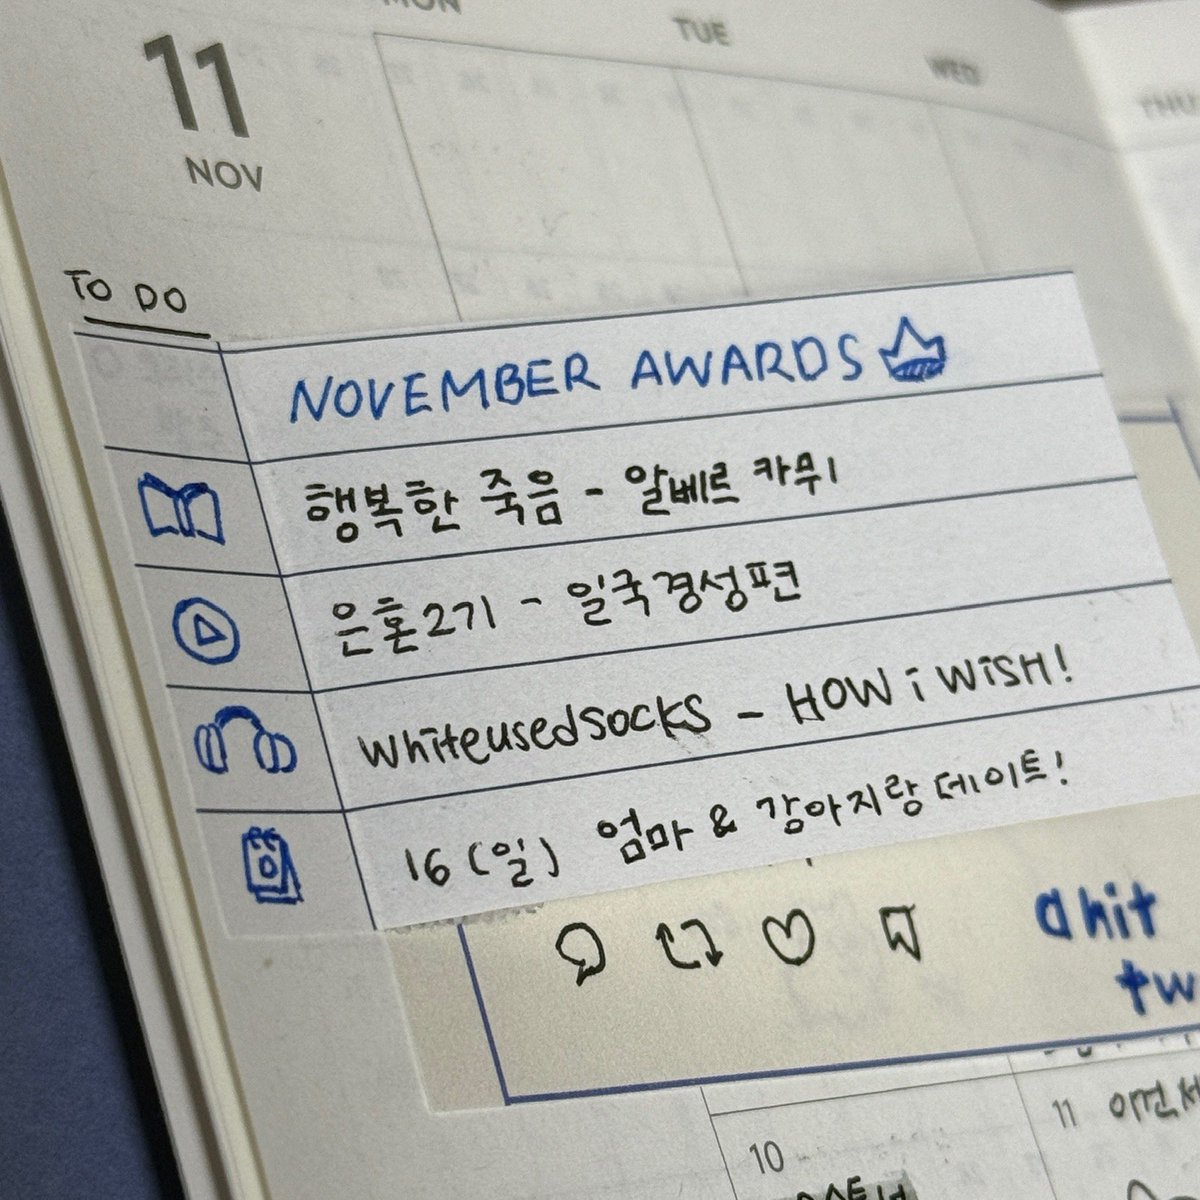 MON
TUE
WED
THU
11
NOV
TO DO
NOVEMBER AWARDS
행복한 죽음 - 알베르 카뮈
은혼2기 - 일국경성편
whiteusedsocks - HOW i WiSH!
16 (일) 엄마 & 강아지랑 데이트!
a hit
tw
10
11 이번